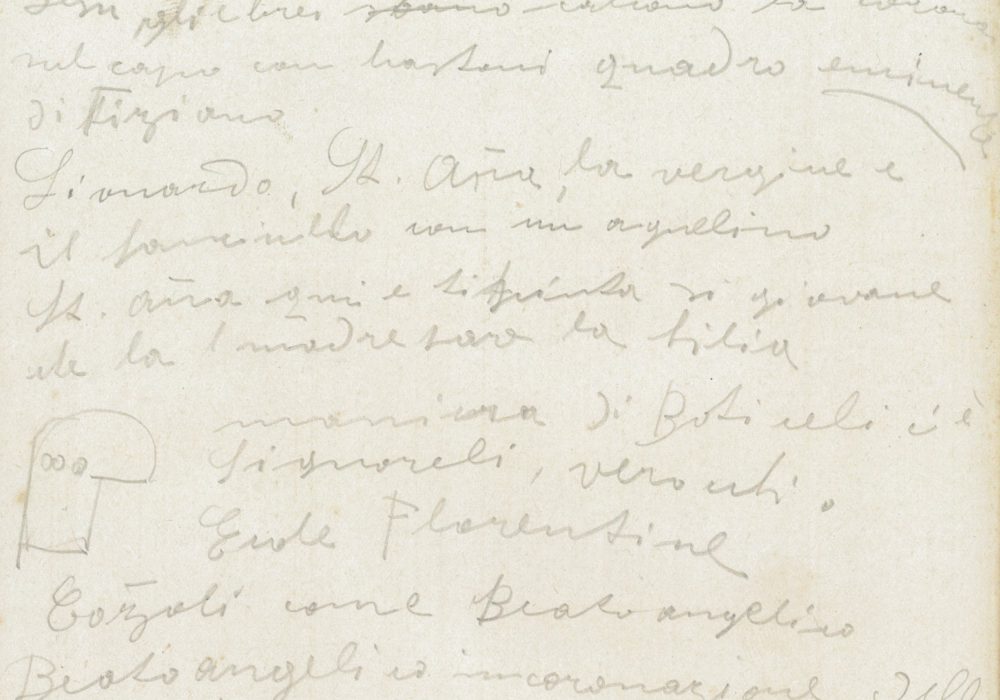 gli ebrei stano calcano la corona
sul capo con bastoni quadro eminenza
di Tiziano
Lionardo, St. Aña, la vergine e
il fanciullo con un agnellino
St. Aña qui e tipinta si giovane
che la madre sara la filia
maniera di Boticeli c'è
Signoreli, verocchi.
Ecole Florentine
Gozzoli come Beatoangelico
Beatoangelico incoronazione della